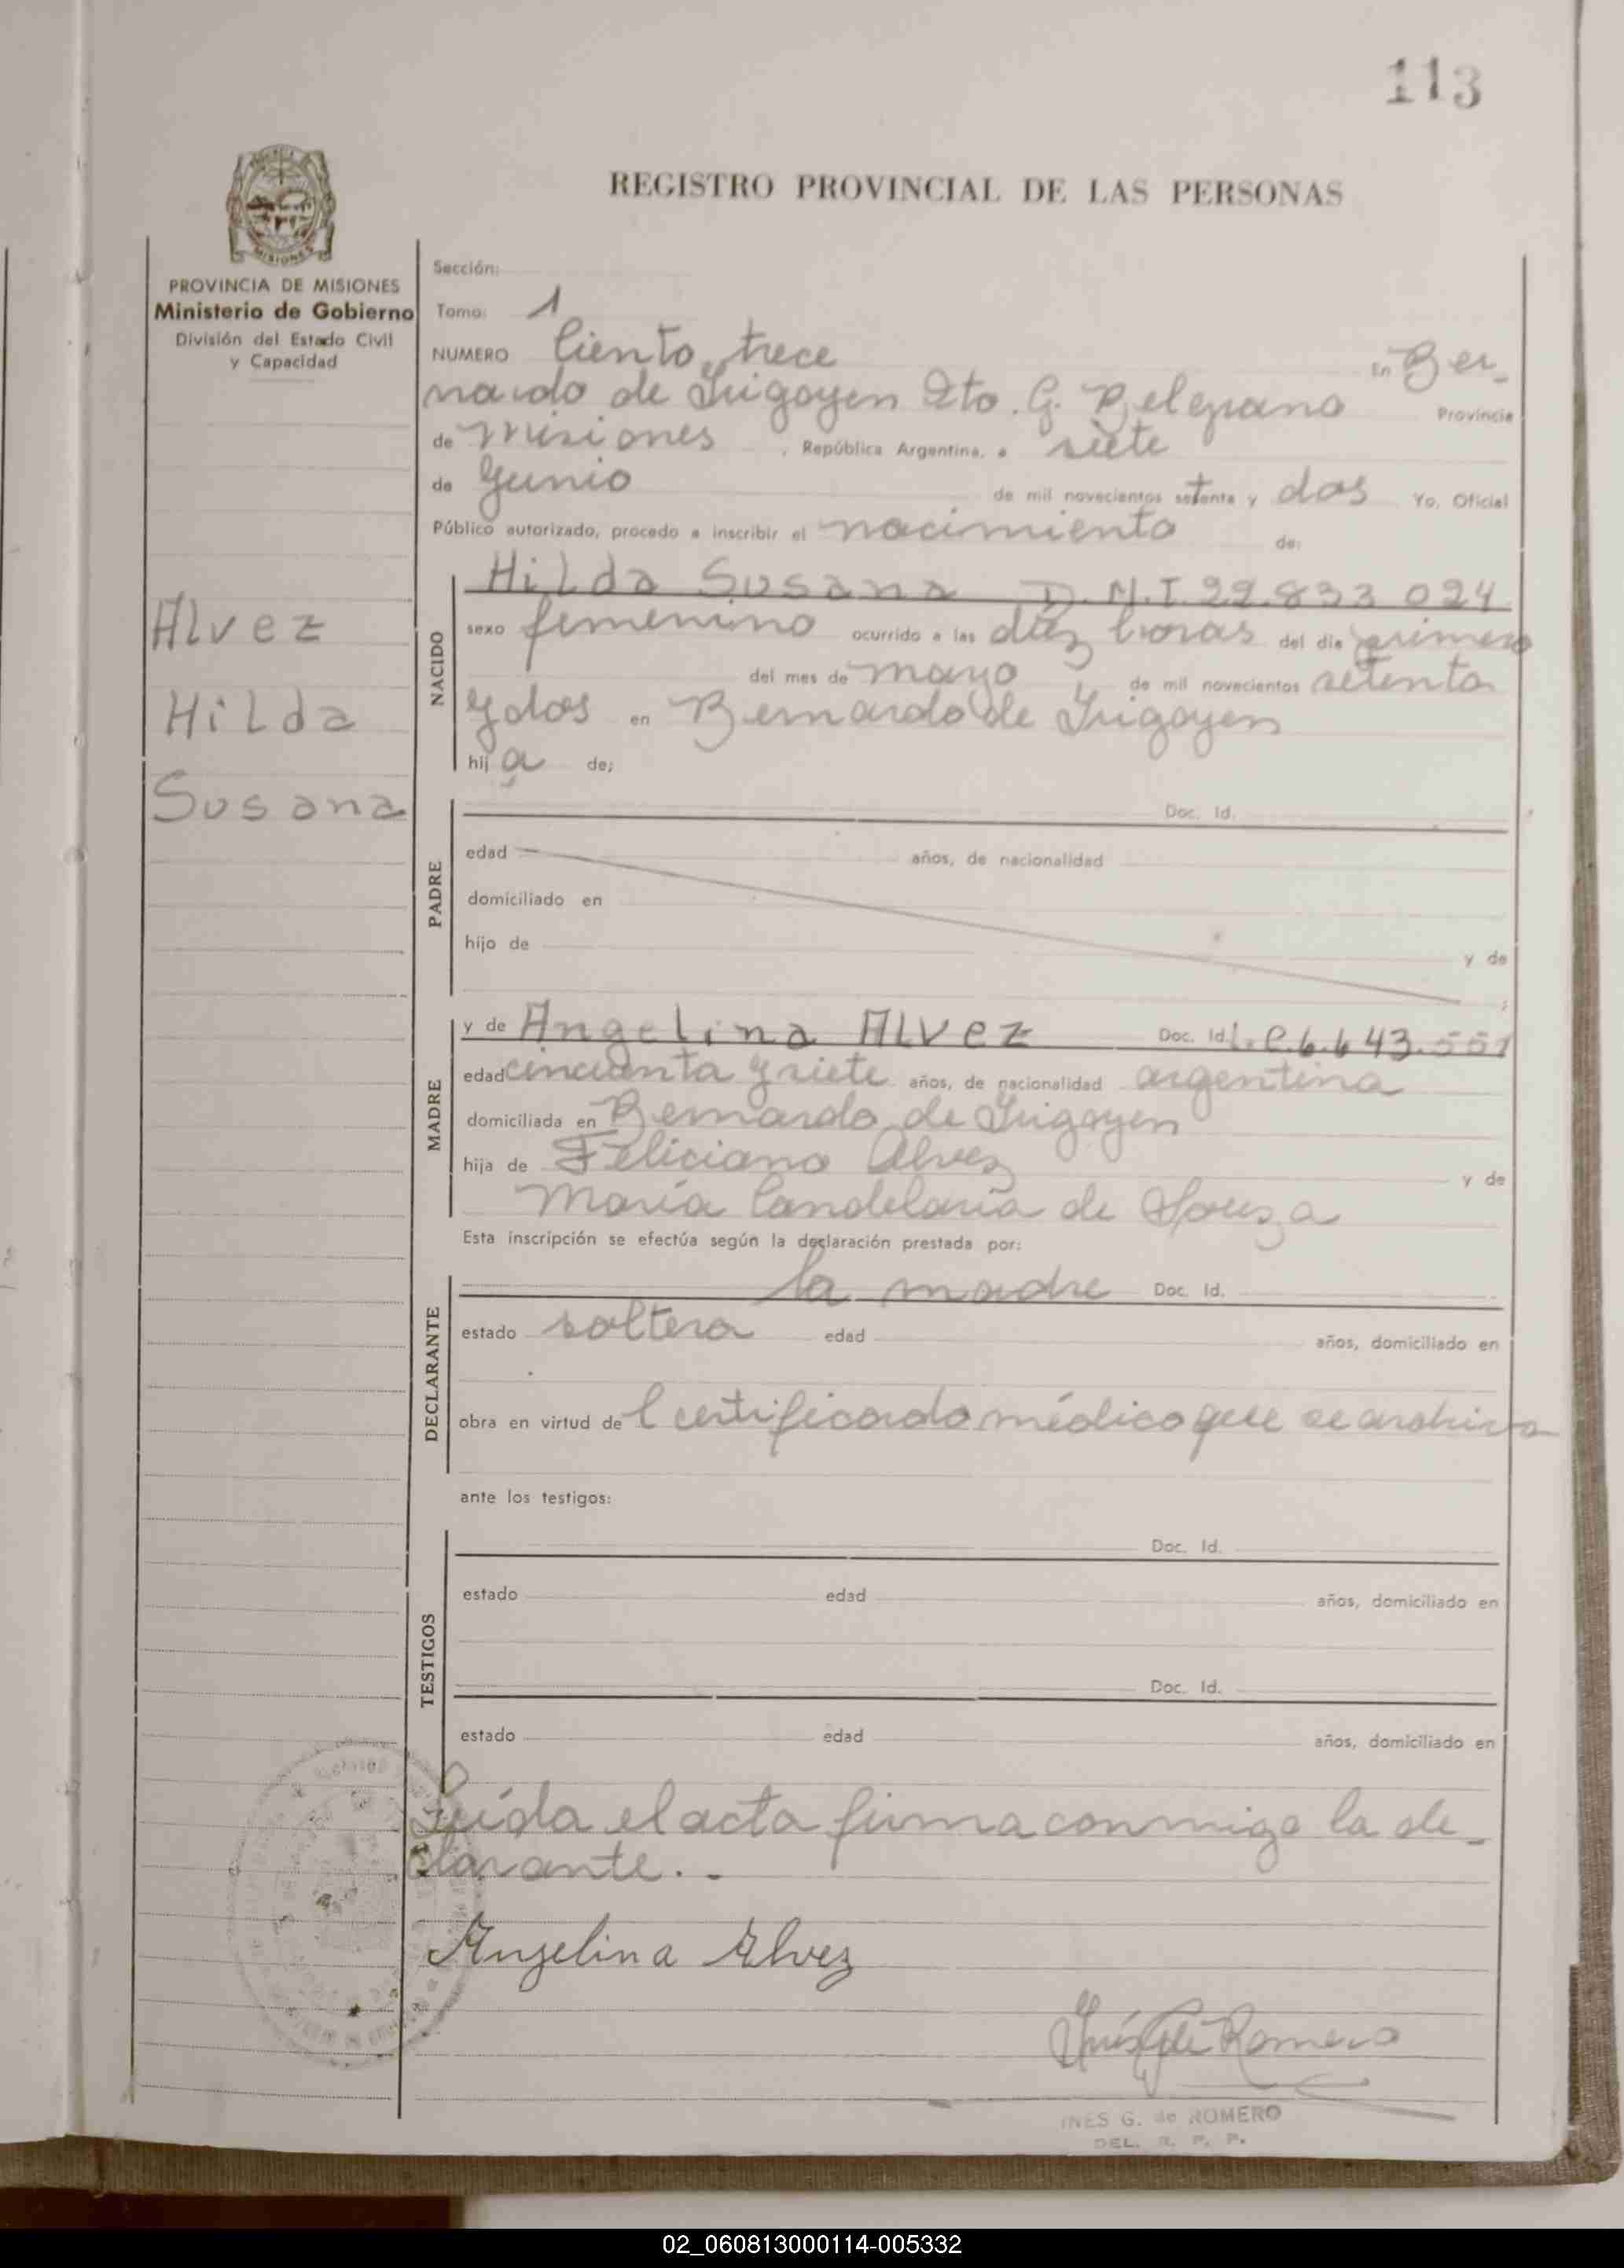 113
REGISTRO PROVINCIAL DE LAS PERSONAS
PROVINCIA DE MISIONES
Ministerio de Gobierno
División del Estado Civil
y Capacidad
Alvez
Hilda
Susana
Sección:
Tomo: 1
NUMERO Ciento trece En Ber-
nardo de Irigoyen Dto. G. Belgrano Provincia
de Misiones , República Argentina, a siete
de Junio de mil novecientos setenta y dos Yo, Oficial
Público autorizado, procedo a inscribir el nacimiento de:
NACIDO
Hilda Susana D.N.I. 22.833 024
sexo femenino ocurrido a las diez horas del día primero
del mes de mayo de mil novecientos setenta
y dos en Bernardo de Irigoyen
hij a de;
PADRE
Doc. Id.
edad años, de nacionalidad
domiciliado en
hijo de y de
;
MADRE
y de Angelina Alvez Doc. Id. L.C.6.643.551
edad cincuenta y siete años, de nacionalidad argentina
domiciliada en Bernardo de Irigoyen
hija de Feliciano Alvez y de
María Candelaria de Souza
Esta inscripción se efectúa según la declaración prestada por:
DECLARANTE
la madre Doc. Id.
estado soltera edad años, domiciliado en
obra en virtud de l certificado médico que se archiva
ante los testigos:
TESTIGOS
Doc. Id.
estado edad años, domiciliado en
Doc. Id.
estado edad años, domiciliado en
Leída el acta firma conmigo la de-
clarante.-
Angelina Alvez
Inés G. de Romero
INES G. de ROMERO
DEL. R. P. P.
02_060813000114-005332